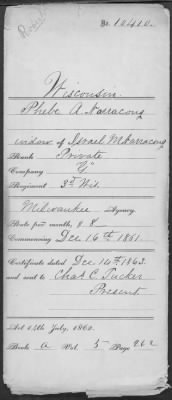 No. 10410.
Wisconsin.
Phebe A Narracong
widow of Israel M Narracong
Rank Private
Company "G"
Regiment 3d Wis.
Milwaukee Agency.
Rate per month, $ 8
Commencing Dec 16th 1861.
Certificate dated Dec 14th 1863.
and sent to Chas C. Tucker
Present
Act 14th July, 1862.
Book A Vol. 5 Page 262